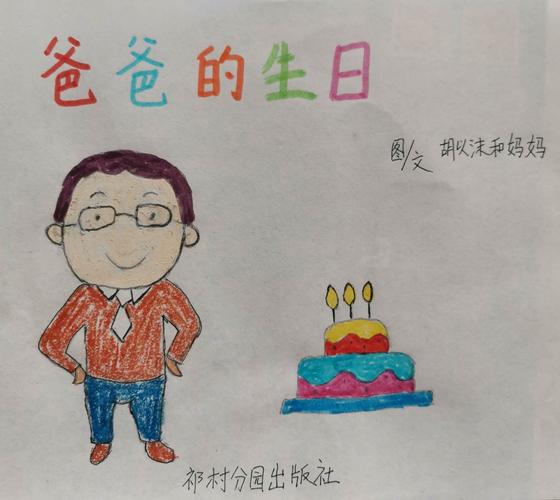 爸爸的生日
图/文 胡以沫和妈妈
祁村分园出版社